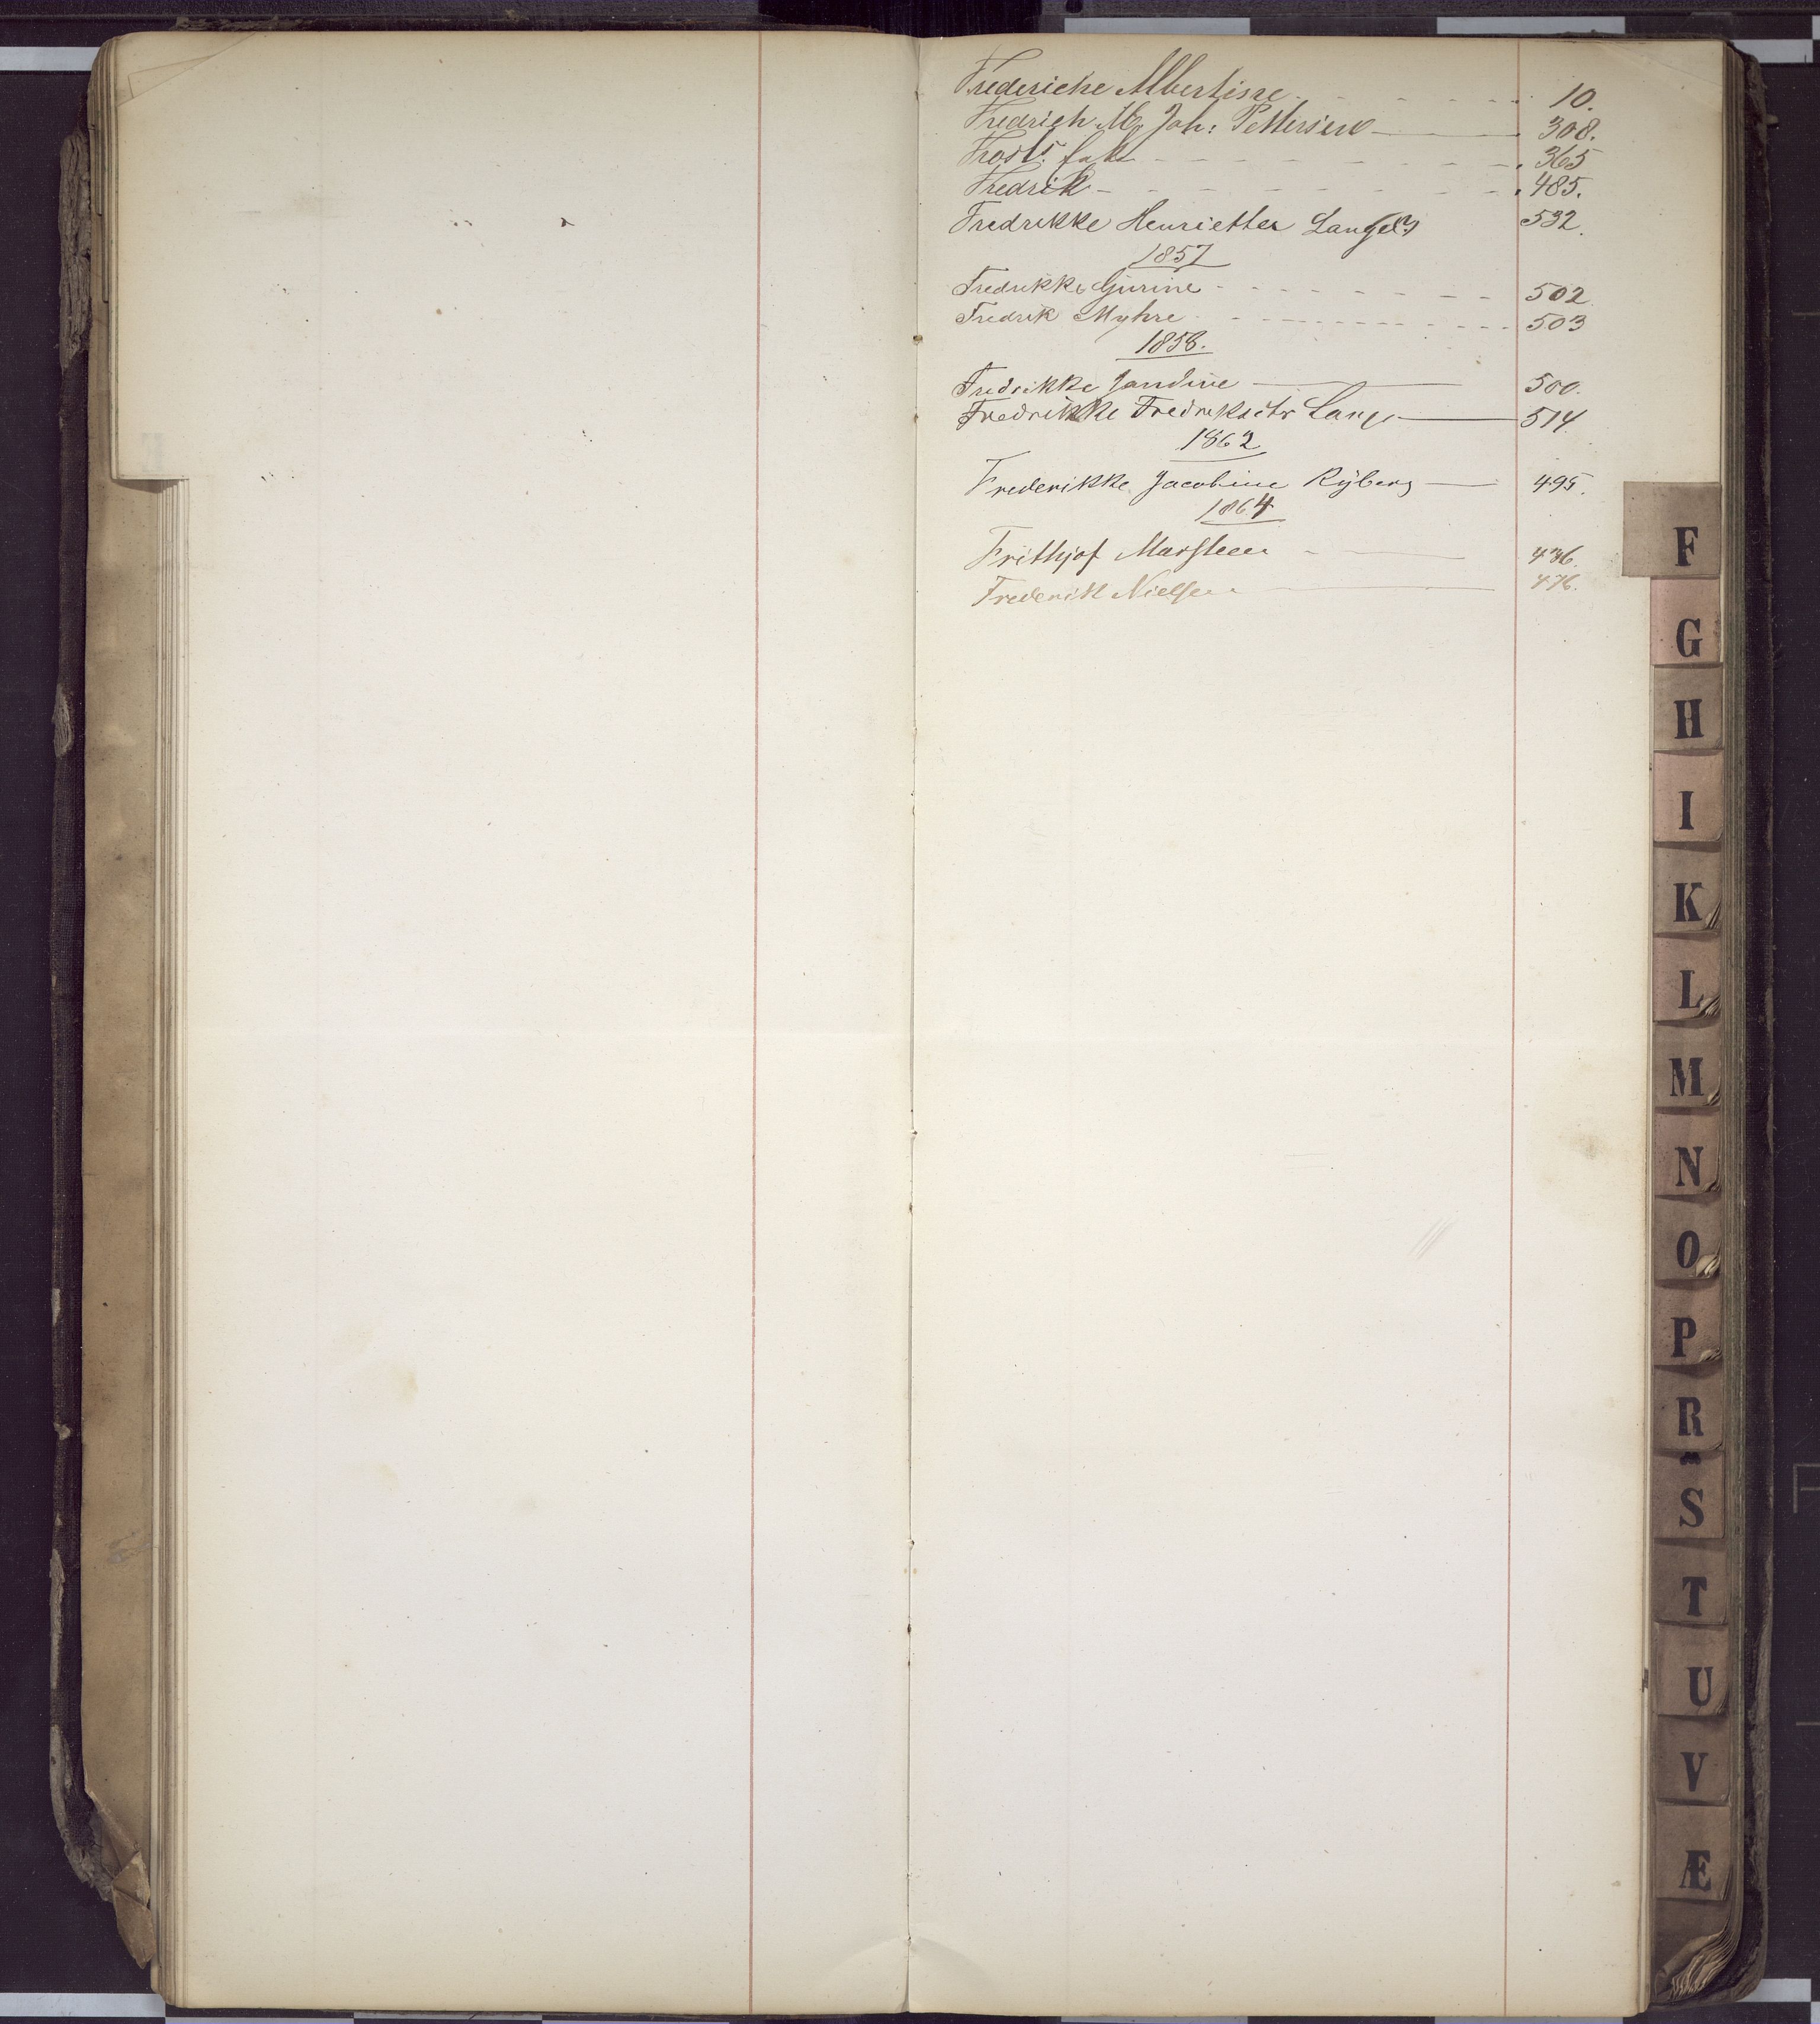 Frederiche Albertine 10.
Fredrich M Joh: Pettersen 308.
365
Fredrik 485.
Fredrikke Henriette Lange 532.
1857
Fredrikke Gurine 502
Fredrik Myhre 503
1858.
Fredrikke Jandine 500.
Fredrikke Fredriksdtr Lange 514
1862
Frederikke Jacobine Ryberg 495.
1864
Frithjof Marsteen 436.
Frederik Nielsen 476.
F
G
H
I
K
L
M
N
O
P
R
S
T
U
V
Æ